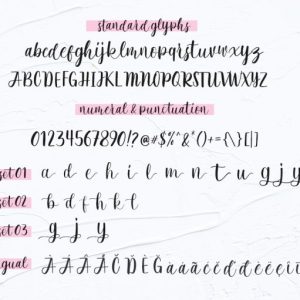 standard glyphs
abcdefghijklmnopqrstuvwxyz
ABCDEFGHIJKLMNOPQRSTUVWXYZ
numeral & punctuation
01234567890!?@#$%^&*()+={\}[|]
set 01 a d e h i l m n t u g j y
set 02 b d f h k l
set 03 g j y